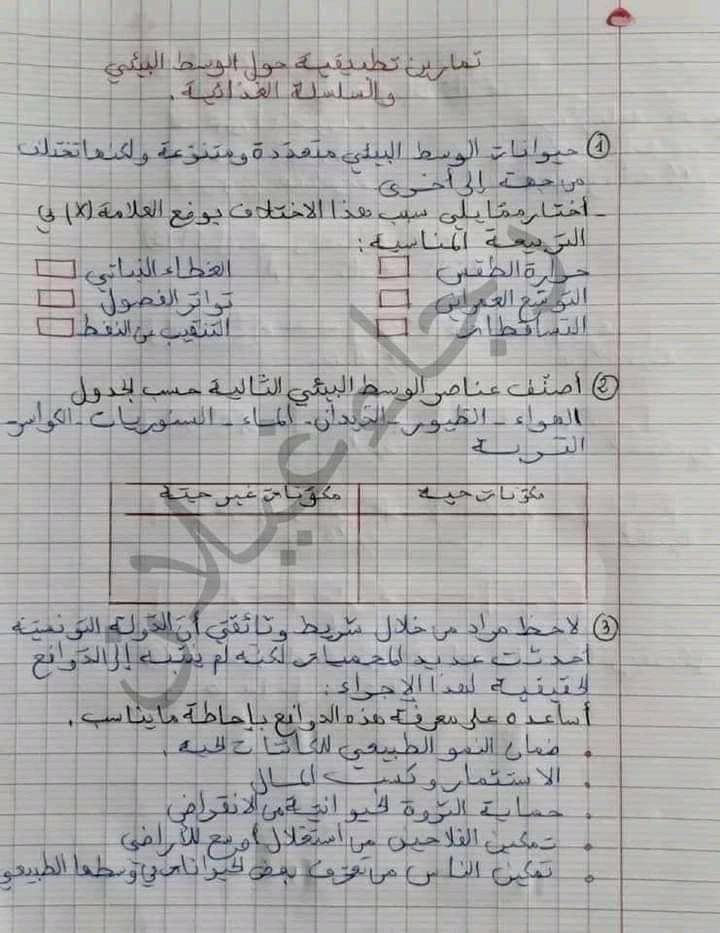 تمارين تطبيقية حول الوسط البيئي
والسلسلة الغذائية.
① حيوانات الوسط البيئي متعدّدة ومتنوّعة ولكنها تختلف
من جهة إلى أخرى
- أختار ممّا يلي سبب هذا الاختلاف بوضع العلامة (X) في
التربيعة المناسبة:
حرارة الطقس الغطاء النباتي
التوسّع العمراني تواتر الفصول
التساقطات التنقيب عن النفط
② أصنّف عناصر الوسط البيئي التّالية حسب الجدول
الهواء - الطيور - الديدان - الماء - السنوريات - الكواسر -
التربة
مكوّنات حية مكوّنات غير حيّة
③ لاحظ مراد من خلال شريط وثائقي أنّ الدّولة التونسيّة
أحدثت عديد المحميات لكنّه لم ينتبه إلى الدّوافع
الحقيقية لهذا الإجراء:
أساعده على معرفة هذه الدوافع بإحاطة ما يناسب.
• ضمان النمو الطبيعي للكائنات الحية.
• الاستثمار وكسب المال
• حماية الثروة الحيوانية من الانقراض
• تمكين الفلاحين من استغلال أوسع للأراضي
• تمكين الناس من تعرّف بعض الحيوانات في وسطها الطبيعي
رجاء غيلان